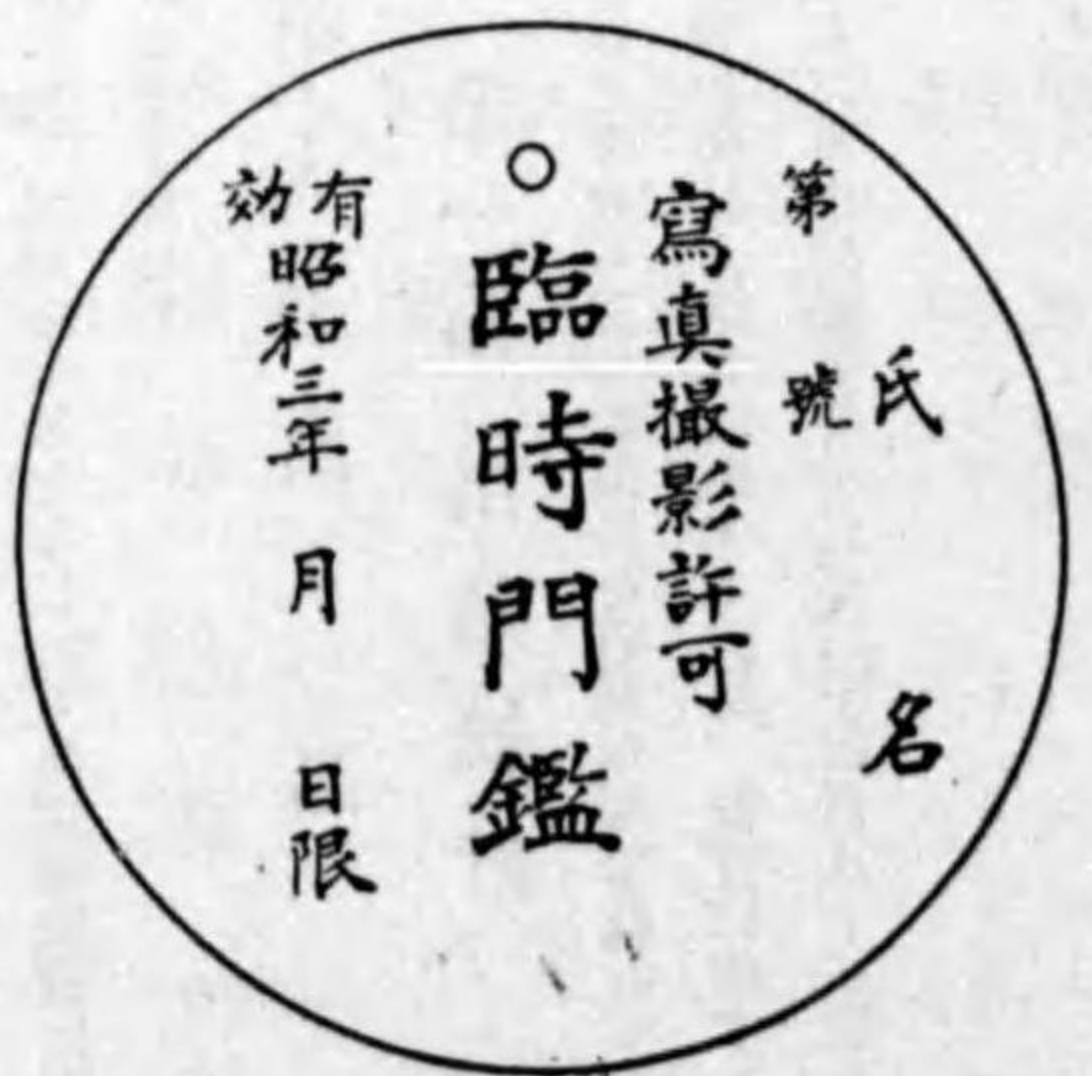 氏名
第號
寫真撮影許可
臨時門鑑
有効
昭和三年月日限